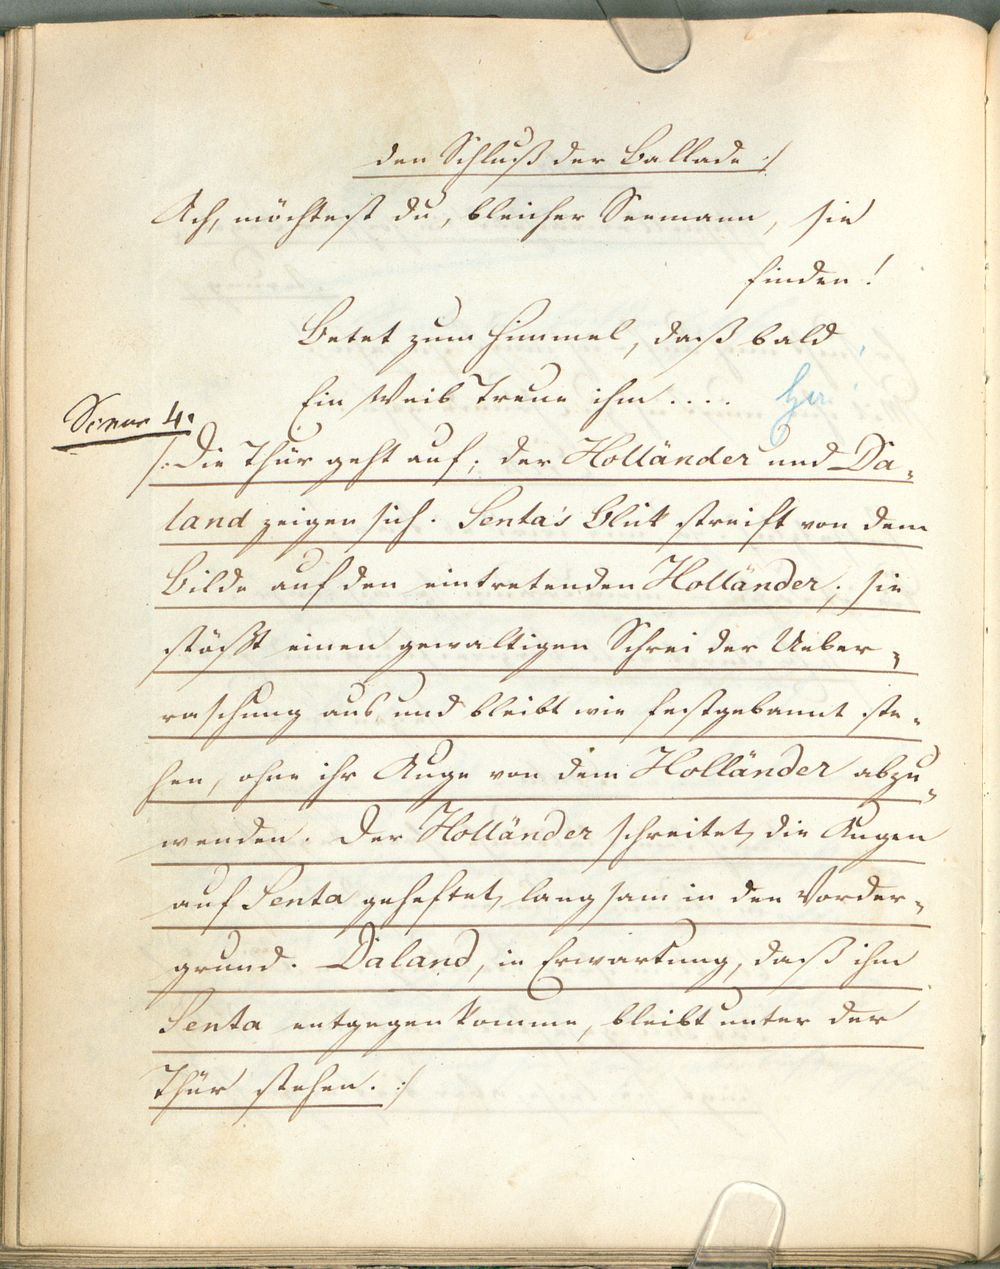 den Schluß der Ballade :/
Ach, möchtest du, bleicher Seemann, sie
finden!
Betet zum Himmel, daß bald
Ein Weib Treue ihm ....
Scene 4.
/: Die Thür geht auf; der Holländer und Da-
land zeigen sich. Senta's Blick streift von dem
Bilde auf den eintretenden Holländer; sie
stößt einen gewaltigen Schrei der Ueber-
raschung aus und bleibt wie festgebannt ste-
hen, ohne ihr Auge von dem Holländer abzu-
wenden. Der Holländer schreitet, die Augen
auf Senta geheftet, langsam in den Vorder-
grund. Daland, in Erwartung, daß ihm
Senta entgegen komme, bleibt unter der
Thür stehen. :/